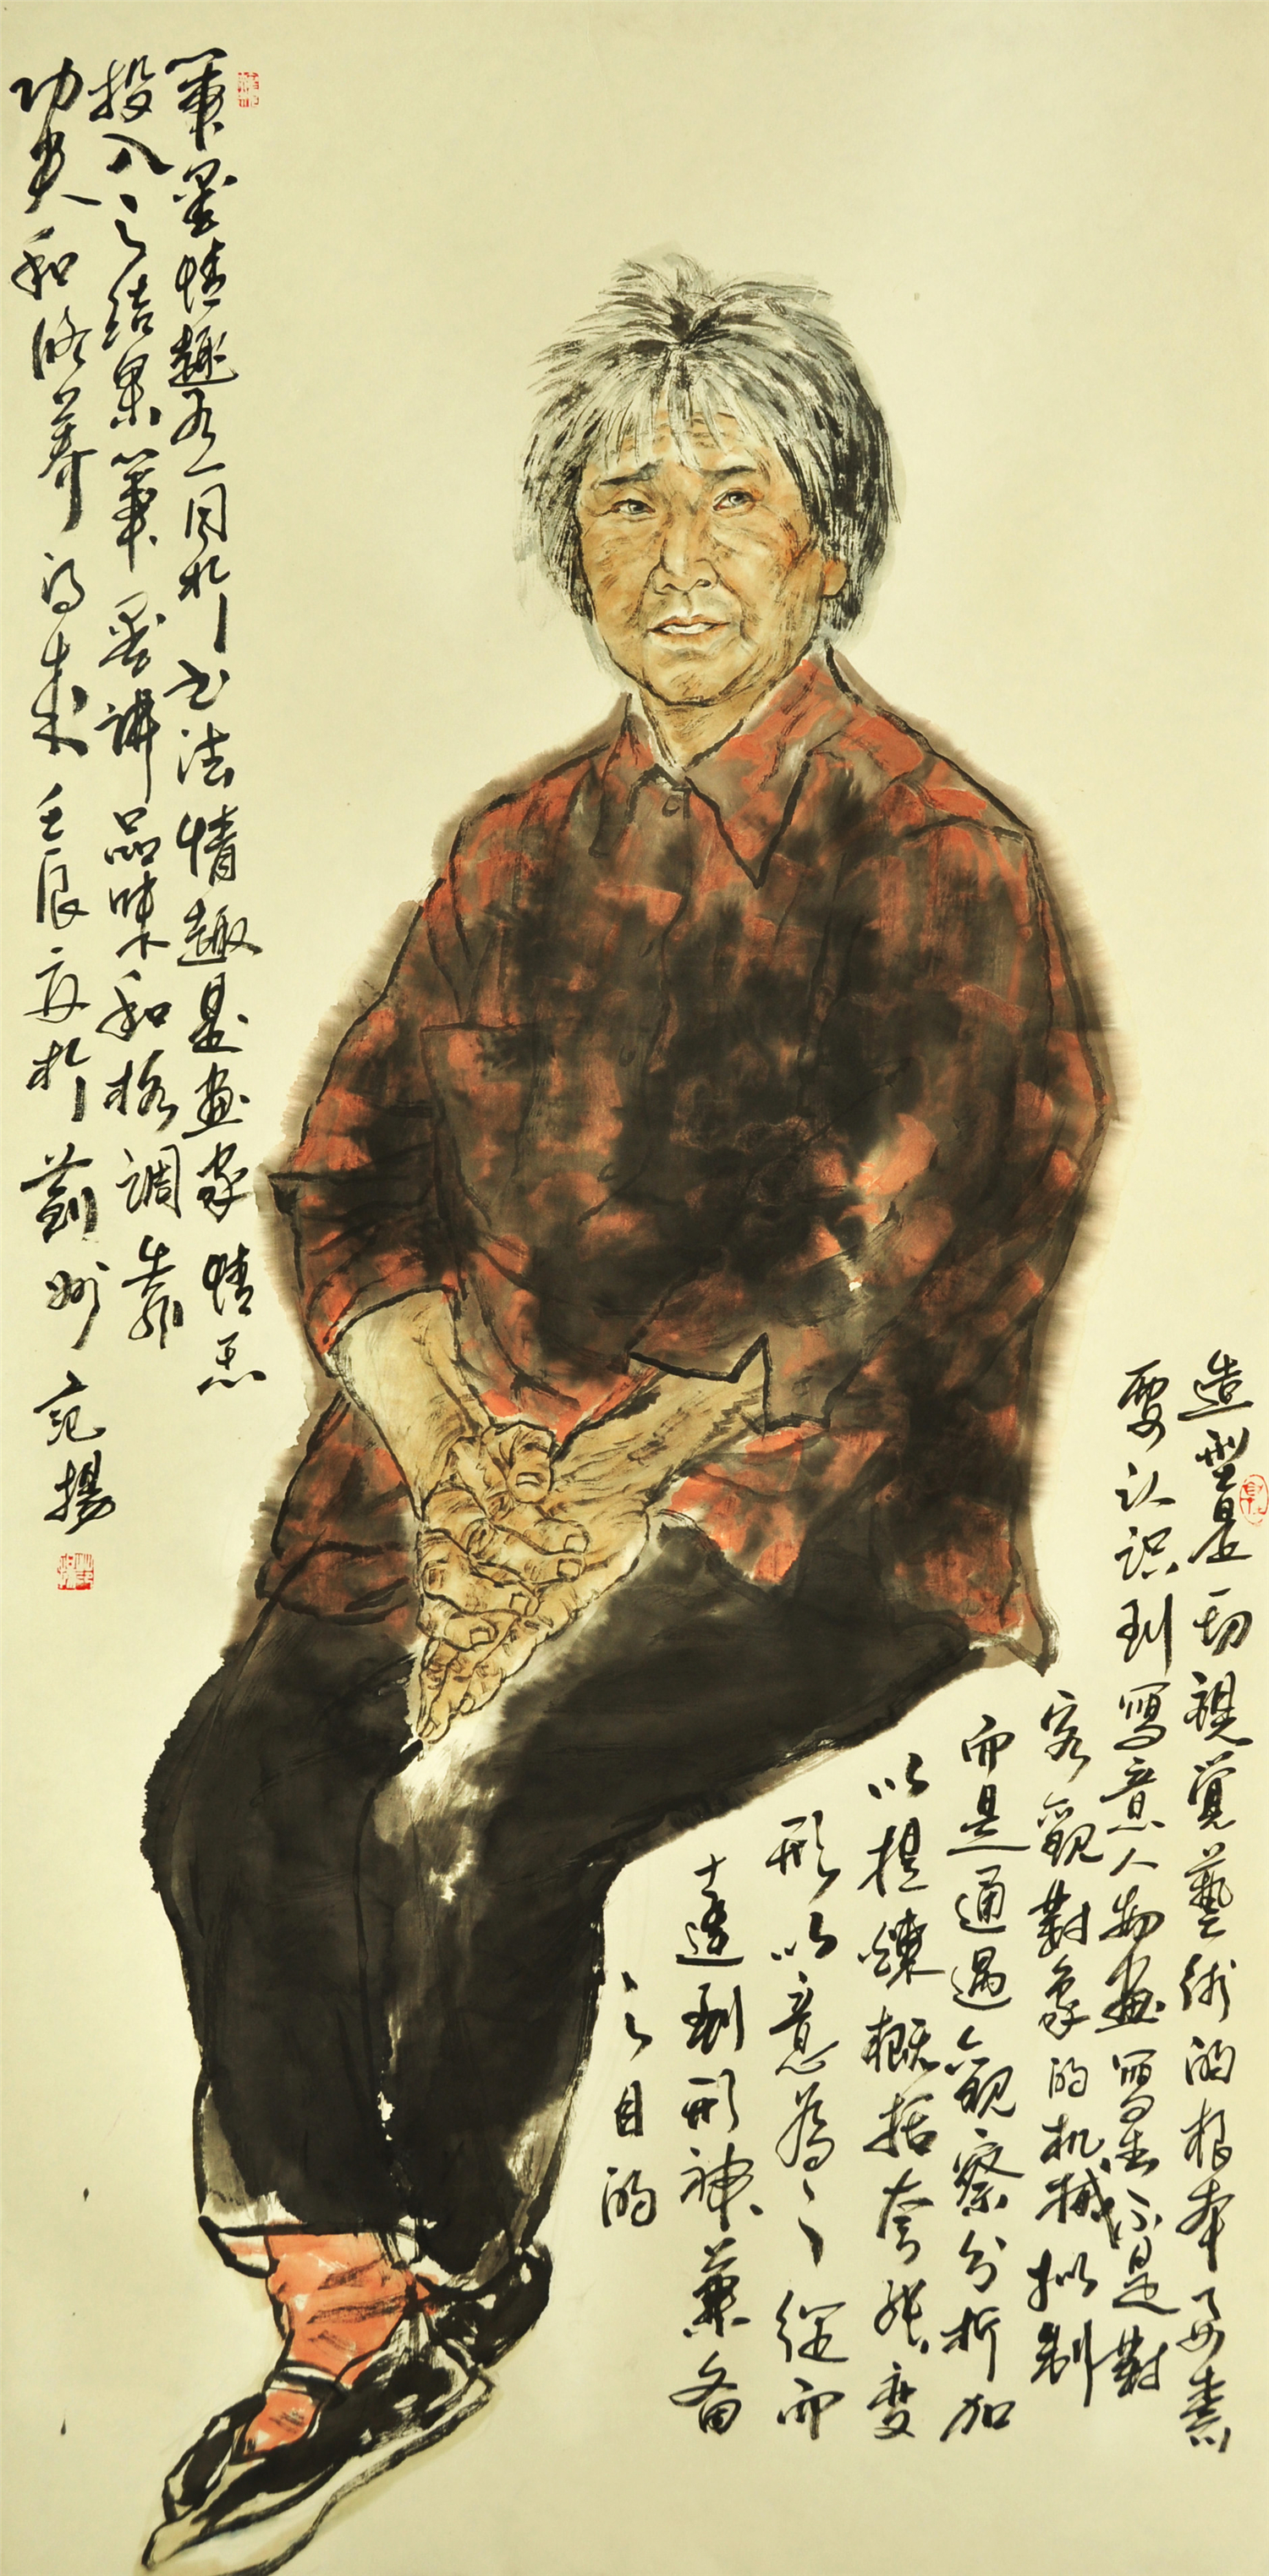 造型是一切視覺藝術的根本要素
要认识到寫意人物畫寫生不是對
客觀對象的机械拟制
而是通過觀察分析加
以提煉概括夸張變
形以意為之從而
達到形神兼备
之目的
筆墨情趣不同於书法情趣是畫家情
投入之结果筆墨講品味和格調靠
功夫和修养得来壬辰夏於薊州范揚